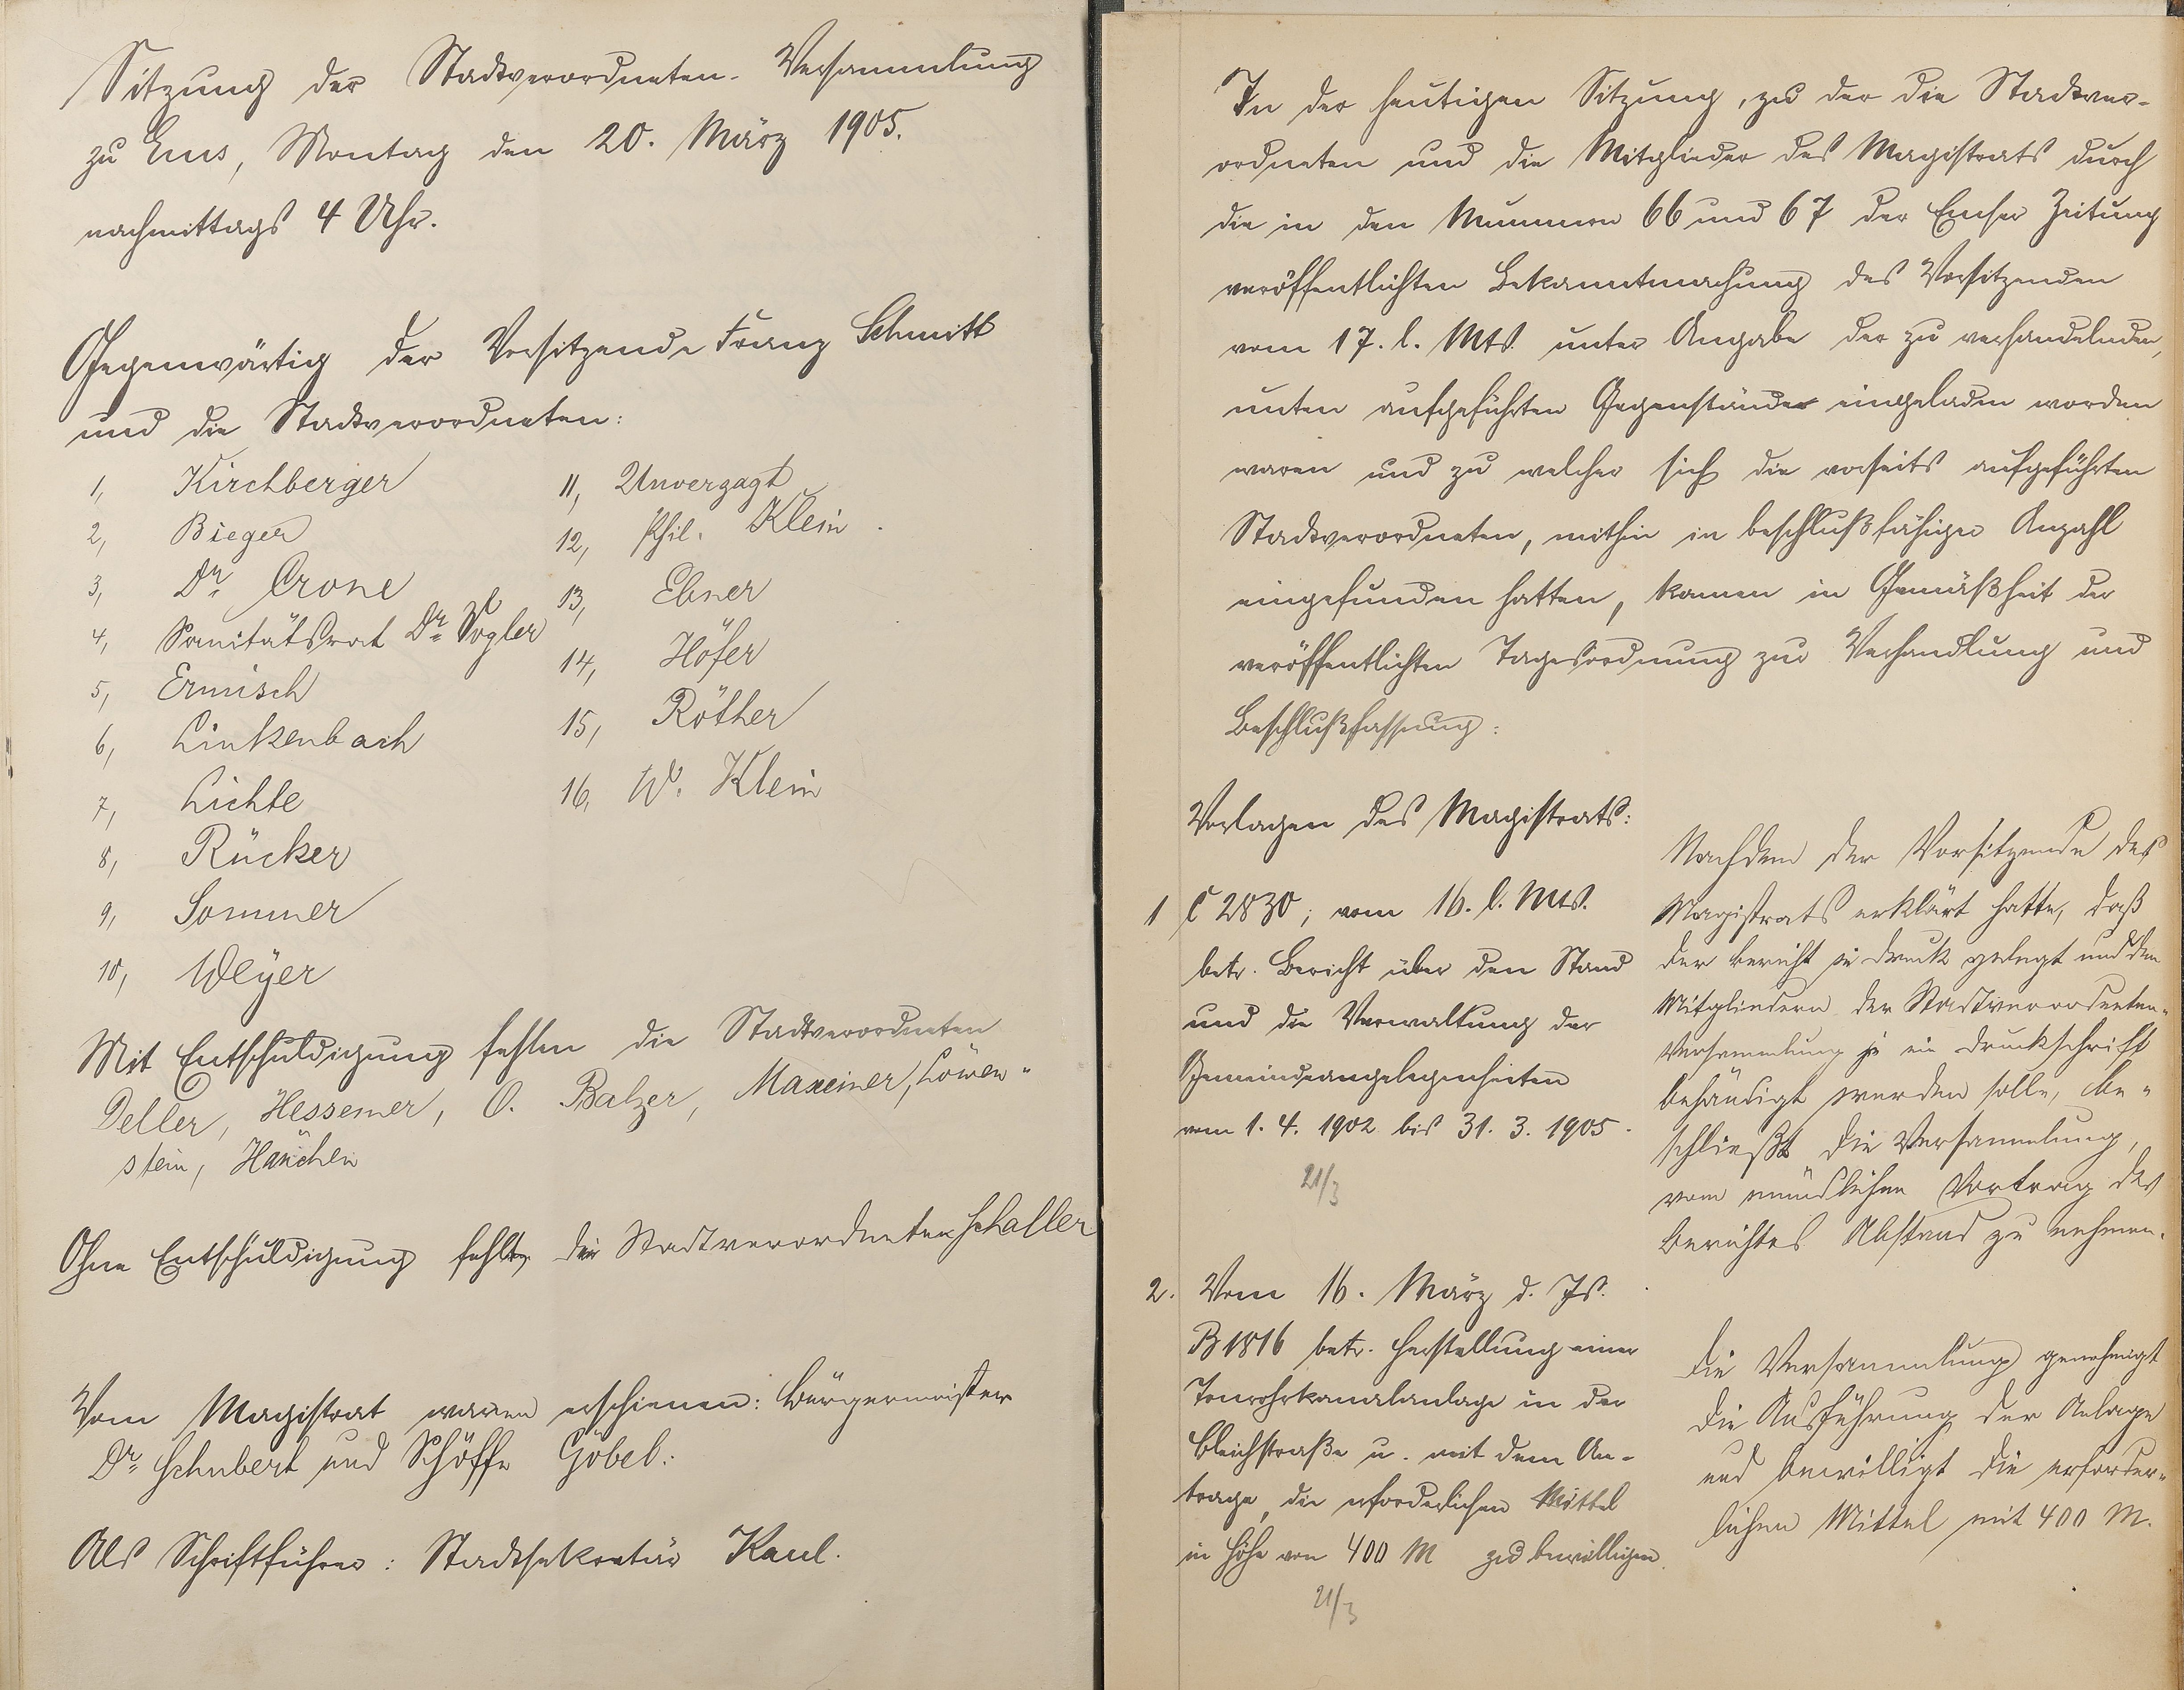 Sitzung der Stadtverordneten-Versammlung
zu Ems, Montag den 20. März 1905.
nachmittags 4 Uhr.
Gegenwärtig der Vorsitzende Franz Schmitt
und die Stadtverordneten:
1, Kirchberger
2, Bieger
3, Dr. Crone
4, Sanitätsrat Dr. Vogler
5, Ermisch
6, Linkenbach
7, Lichte
8, Rücker
9, Sommer
10, Weyer
11, Unverzagt
12, Phil. Klein.
13, Ebner
14, Höfer
15, Röther
16, W. Klein
Mit Entschuldigung fehlen die Stadtverordneten
Deller, Hessemer, O. Balzer, Maxeiner, Löwen-
stein, Häuchen
Ohne Entschuldigung fehlte der Stadtverordneten Schaller
Vom Magistrat waren erschienen: Bürgermeister
Dr. Schubert und Schöffe Göbel.
Als Schriftführer: Stadtsekretär Kaul.
In der heutigen Sitzung, zu der die Stadtver-
ordneten und die Mitglieder des Magistrats durch
die in den Nummern 66 und 67 der Emser Zeitung
veröffentlichten Bekanntmachung des Vorsitzenden
vom 17. l. Mts. unter Angabe der zu verhandelnden,
unten aufgeführten Gegenstände eingeladen worden
waren und zu welcher sich die vorseits aufgeführten
Stadtverordneten, mithin in beschlußfähiger Anzahl
eingefunden hatten, kamen in Gemäßheit der
veröffentlichten Tagesordnung zur Verhandlung und
Beschlußfassung:
Vorlagen des Magistrats:
1 C 2830; vom 16. l. Mts.
betr. Bericht über den Stand
und die Verwaltung der
Gemeindeangelegenheiten
vom 1. 4. 1902 bis 31. 3. 1905.
21/3
Nachdem der Vorsitzende des
Magistrats erklärt hatte, daß
der Bericht in Druck gelegt und den
Mitgliedern der Stadtverordneten-
Versammlung je ein Druckschrift
behändigt werden solle, be-
schließt die Versammlung,
vom mündlichen Vortrag des
Berichtes Abstand zu nehmen.
2. Vom 16. März d. Js.
B 1816 betr. Herstellung einer
Tonrohrkanalanlage in der
Bleichstraße u. mit dem An-
trage, die erforderlichen Mittel
in Höhe von 400 M zu bewilligen.
21/3
Die Versammlung genehmigt
die Ausführung der Anlage
und bewilligt die erforder-
lichen Mittel mit 400 M.